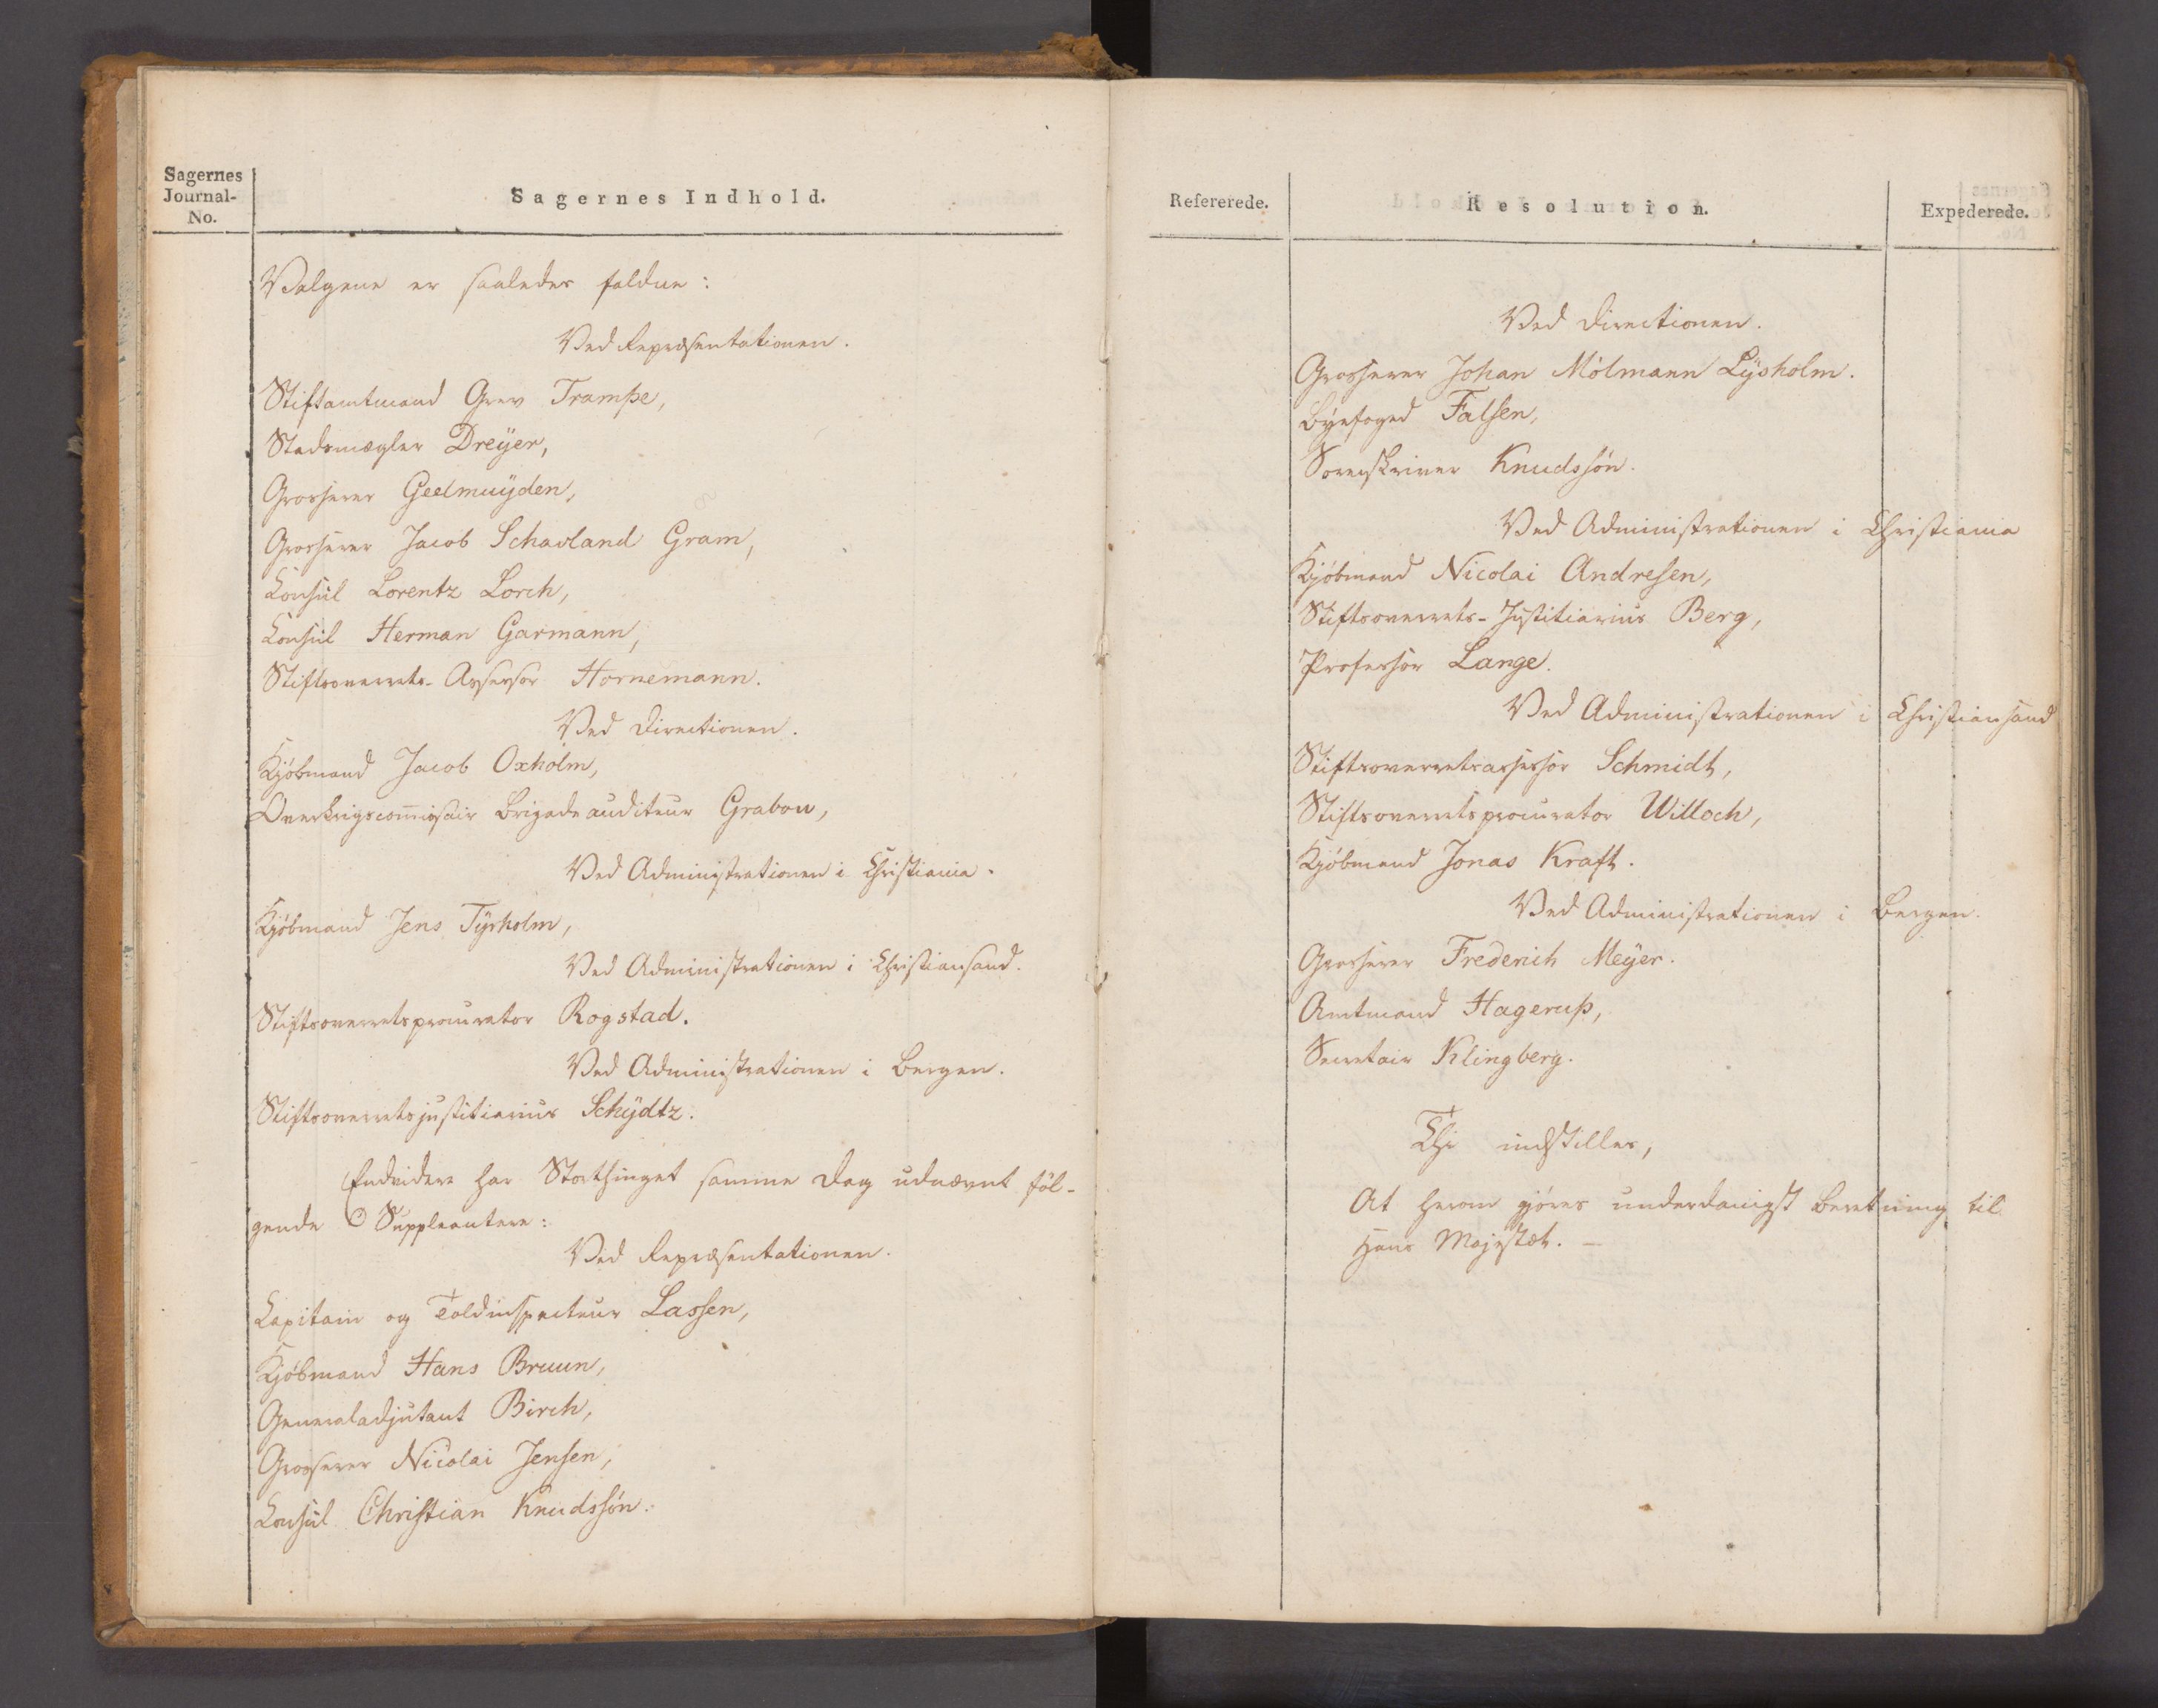 Sagernes
Journal-
No.
Sagernes Indhold.
Valgene er saaledes faldne:
Ved Repræsentationen.
Stiftamtmand Grev Trampe,
Stadsmægler Dreÿer,
Grosserer Geelmuÿden,
Grosserer Jacob Schavland Gram,
Consul Lorentz Lorch,
Consul Herman Garmann,
Stiftsoverrets-Assessor Hornemann.
Ved Directionen.
Kjöbmand Jacob Oxholm,
Overkrigscom̅issair Brigadeauditeur Grabow,
Ved Administrationen i Christiania.
Kjöbmand Jens Tÿrholm,
Ved Administrationen i Christiansand.
Stiftsoverretsprocurator Rogstad.
Ved Administrationen i Bergen.
Stiftsoverretsjustitiarius Schÿdtz.
Endvidere har Storthinget samme Dag udnævnt föl-
gende Suppleantere:
Ved Repræsentationen.
Capitain og Toldinspecteur Lassen,
Kjöbmand Hans Bruun,
Generaladjutant Birch,
Grosserer Nicolai Jensen,
Consul Christian Knudssön.
Refererede.
Resolution.
Expederede.
Ved Directionen.
Grosserer Johan Mölmann Lÿsholm.
Bÿefoged Falsen,
Sorenskriver Knudssön.
Ved Administrationen i Christiania
Kjöbmand Nicolai Andresen,
Stiftsoverrets-Justitiarius Berg,
Professor Lange.
Ved Administrationen i Christiansand
Stiftsoverretsassessor Schmidt,
Stiftsoverretsprocurator Willoch,
Kjöbmand Jonas Kraft.
Ved Administrationen i Bergen.
Grosserer Frederich Meÿer.
Amtmand Hagerup,
Secretair Klingberg.
Thi indstilles,
At herom gjöres underdanigst Beretning til
Hans Majestæt. —